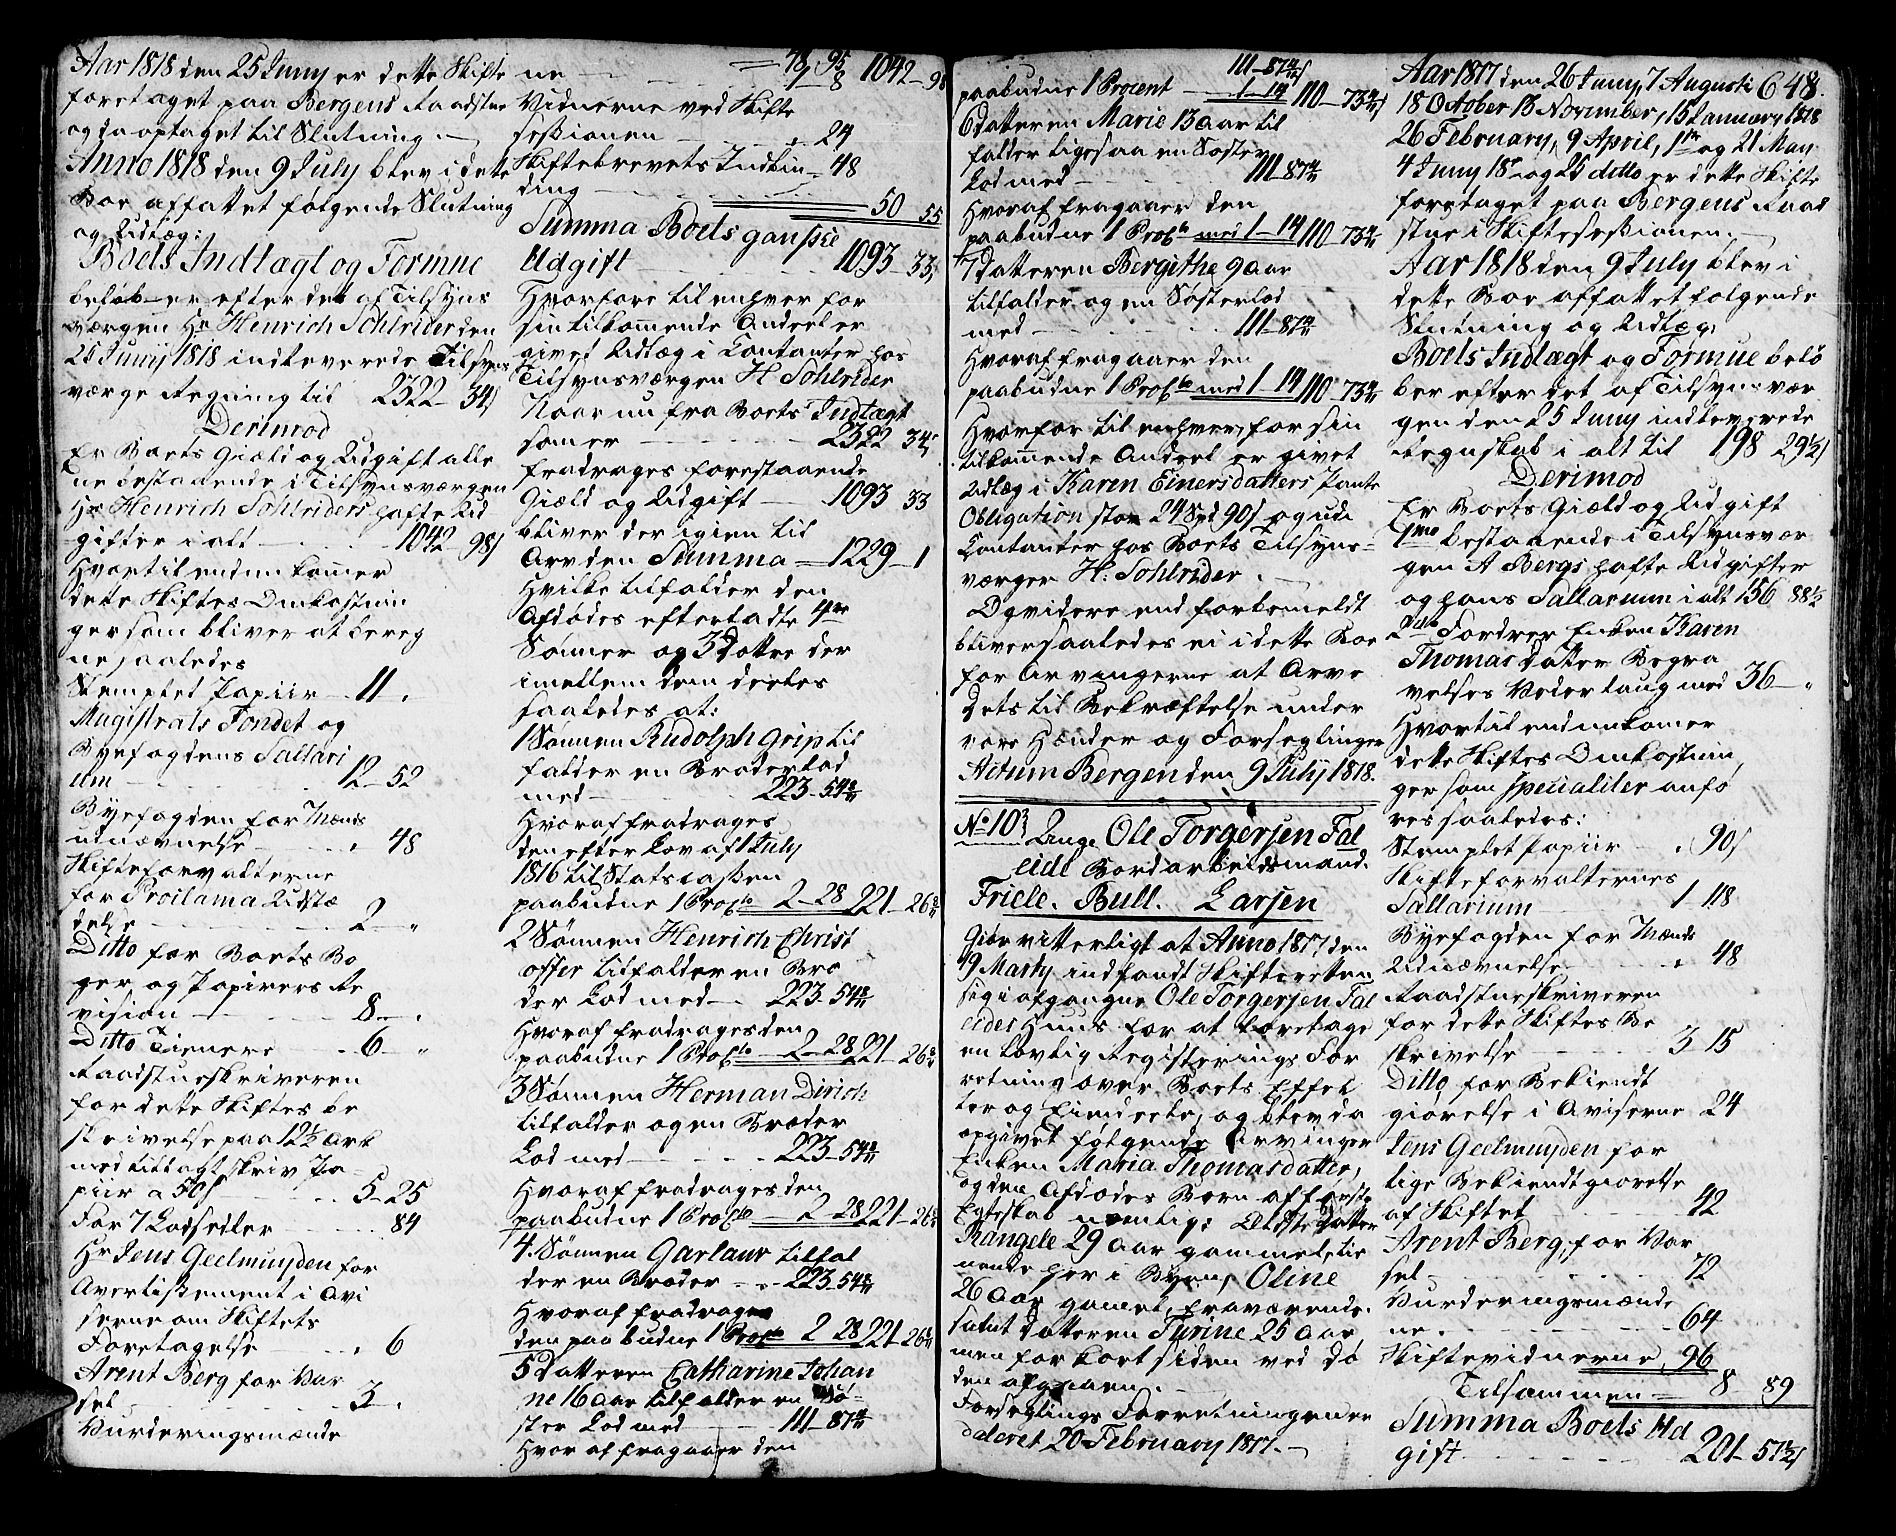 Aar 1818 den 25 Juny er dette Skifte
foretaget paa Bergens Raadstue
og da optaget til Slutning.
Anno 1818 den 9 July blev i dette
Boe affattet følgende Slutning
og Udlæg:
Boets Indtægt og Formue
beløb er efter det af Tilsyns
værgen Hr Henrich Sohlrider den
25 Junij 1818 indleverede Tilsyns
værge Regning til 2322 - 34 s
Derimod
Er Boets Giæld og Udgift alle
ne bestaaende i Tilsynsværgen
Hr Henrich Sohlriders hafte Ud
gifter i alt 1042 - 98 s
Hvortil endnu komer
dette Skiftes Omkostnin
ger som bliver at bereg
ne saaledes
Stemplet Papiir 11 .
Magistrats Fondet og
Byefogdens Sallari
um 12 - 52
Byefogden for Mænds
udnævnelse " 48
Skifteforvalterne
for Proclama Udstæ
delse 2 "
Ditto for Boets Bø
ger og Papirers Re
vision 8 .
Ditto Tienere 6 "
Raadstueskriveren
for dette Skiftes be
skrivelse paa 12½ Ark
med tillagt skriv Pa
piir a 50 s 5 - 25
For 7 Lodsedler 84
Hr Jens Geelmuyden for
Avertissement i Avi
serne om Skiftets
Foretagelse " 6
Arent Berg for Var
sel 3 .
Vurderingsmænde
ne 48 95 1042 - 98
1 - 8
Vidnerne ved Skifte
sessionen " 24
Skiftebrevets Indbin
ding 48
50 55
Summa Boets gandske
Udgift 1093 - 33
Hvorfore til enhver for
sin tilkomende Andeel er
givet Udlæg i Contanter hos
Tilsynsværgen H Sohlrider
Naar nu fra Boets Indtægt
som er 2322 34
fradrages forestaaende
Giæld og Udgift 1093 33
bliver der igien til
Arv den Summa 1229 - 1
Hvilke tilfalder den
Afdødes efterladte 4re
Sønner og 3 Døttre der
imellem dem deeles
saaledes at:
1 Sønnen Rudolph Grip til
falder en Broderlod
med 223 - 54
Hvoraf fradrages
den efter Lov af 1 July
1816 til Statscassen
paabudne 1 Procto 2 - 28 221 - 26
2 Sønnen Henrich Christ
offer tilfalder en Bro
der Lod med 223 - 54
Hvoraf fradrages den
paabudne 1 Procto 2 - 28 221 - 26
3 Sønnen Herman Dirich
tilfalder og en Broder
Lod med 223 - 54
Hvoraf fradrages den
paabudne 1 Procto 2 - 28 221 - 26
4. Sønnen Garlauw tilfal
der en Broder 223 - 54
Hvoraf fradrages
den paabudne 1 Procto 2 - 28 221 - 26
5 Datteren Catharine Johan
ne 16 Aar tilfalder en Sø
ster Lod med 111 - 87
Hvoraf fragaaer den
111 - 87
paabudne 1 Procent 1 - 14 110 - 73
6 Datteren Marie 13 Aar til
falder ligesaa en Søster
Lod med 111 - 87
Hvoraf fragaaer den
paabudne 1 Procto med 1 - 14 110 - 73
7 Datteren Bergithe 9 Aar
tilfalder og en Søsterlod
med 111 - 87
Hvoraf fragaaer den
paabudne 1 Procto med 1 - 14 110 - 73
Hvorfor til enhver for sin
tilkomende Andeel er givet
Udlæg i Karen Einersdatters Pante
Obligation stor 24 Spd 90 s og udi
Contanter hos Boets Tilsyns
værger H. Sohlrider.
Og videre end forbemeldt
bliver saaledes ei i dette Boe
for Arvingerne at Arve
Dets til Bekræftelse under
vore Hænder og Forseglinger
Actum Bergen den 9 Julÿ 1818.
No 103 Ole Torgersen Fal
eide Bordarbeidsmand.
Friele. Bull. Larsen
Giøre vitterligt at Anno 1817 den
19 Marty indfandt Skifteretten
sig i afgangne Ole Torgersen Fal
eides Huus for at foretage
en lovlig Registerings For
retning over Boets Effec
ter og Eiendeele, og blev da
opgivet følgende Arvinger
Enken Maria Thomasdatter,
og den Afdødes Børn af første
Egteskab nemlig: Ældste Datter
Rangele 29 Aar gammel, tie
nende her i Byen, Oline
26 Aar gamel, fraværende.
samt Datteren Turine 25 Aar,
men for kort siden ved Dø
den afgaaen.
Forseglings Forretningen er
dateret 20 February 1817.
648.
Aar 1817 den 26 Juny 7 Augusti
18 October 13 November, 15 January 1818
26 February, 9 April, 1ste og 21 May
4 Juny 18 og 25 ditto er dette Skifte
foretaget paa Bergens Raad
stue i Skiftesessionen.
Aar 1818 den 9 July blev i
dette Boe affattet følgende
Slutning og Udlæg,
Boets Indtægt og Formue belø
ber efter det af Tilsynsvær
gen den 25 Juny indleverede
Regnskab i alt til 198 29½ s
Derimod
Er Boets Giæld og Udgift
1mo bestaaende i Tilsynsvær
gen A Bergs hafte Udgifter
og hans Sallarium i alt 156 88½
2do Fordrer Enken Karen
Thomasdatter Begra
velses Vederlaug med 36 "
Hvortil endnu komer
dette Skiftes Omkostnin
ger som specialiter anfø
res saaledes:
Stemplet Papiir . 90 s
Skifteforvalternes
Sallarium 1 118
Byefogden for Mænds
Udnævnelse " 48
Raadstueskriveren
for dette Skiftes Be
skrivelse 3 15
Ditto for Bekiendt
giørelse i Aviserne 24
Jens Geelmuyden for
lige Bekiendtgiørelse
af Skiftet 42
Arent Berg for Var
sel 72
Vurderingsmænde
ne. 64
Skiftevidnerne 96
Tilsammen 8 89
Summa Boets Ud
gift 201 - 57½ s